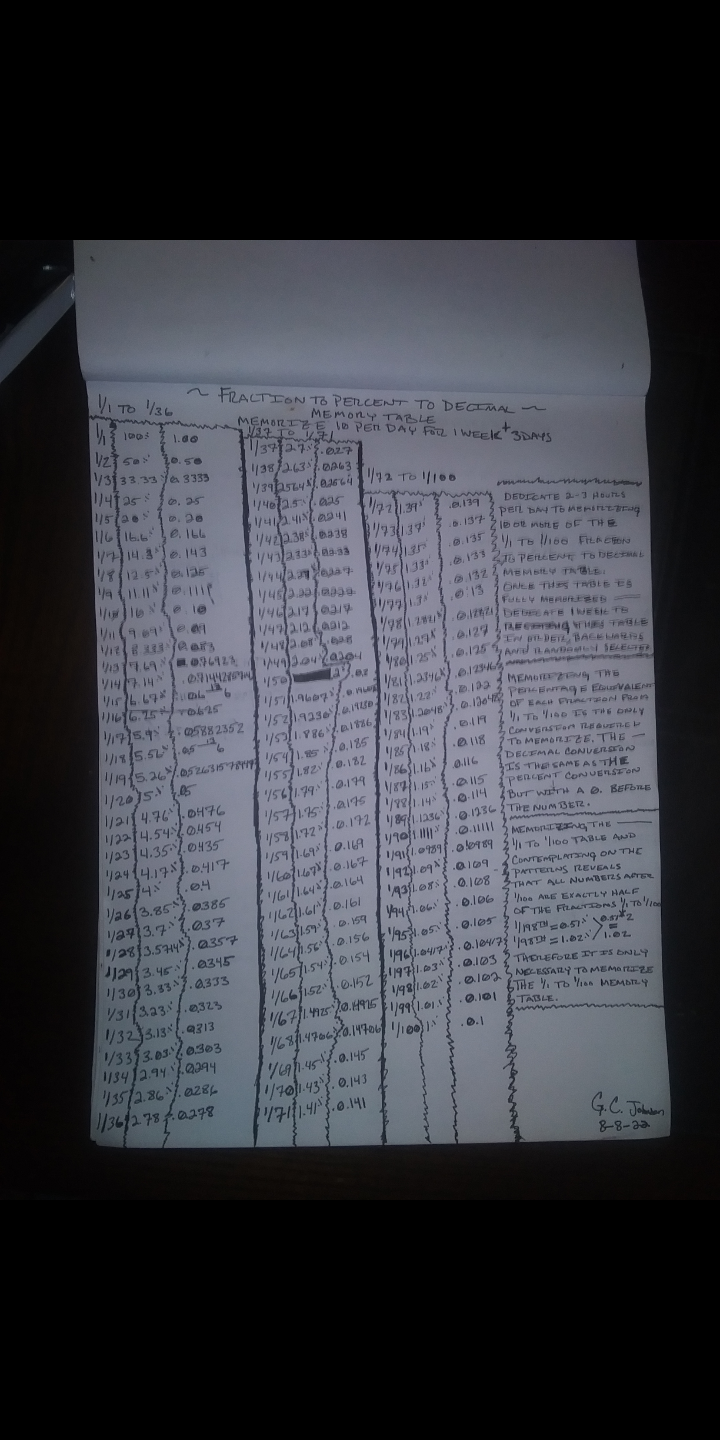 ~ FRACTION TO PERCENT TO DECIMAL ~
MEMORY TABLE
MEMORIZE 10 PER DAY FOR 1 WEEK + 3 DAYS
1/1 TO 1/36
1/1 100% 1.00
1/2 50% 0.50
1/3 33.33 0.3333
1/4 25% 0.25
1/5 20% 0.20
1/6 16.6% 0.166
1/7 14.3% 0.143
1/8 12.5% 0.125
1/9 11.11% 0.1111
1/10 10% 0.10
1/11 9.09% 0.09
1/12 8.333% 0.083
1/13 7.69% 0.76923
1/14 7.14%
1/15 6.67%
1/16 6.25% 0.625
1/17 5.9% .05882352
1/18 5.56%
1/19 5.26%
1/20 5% .05
1/21 4.76% .0476
1/22 4.54% .0454
1/23 4.35% .0435
1/24 4.17% .0417
1/25 4% .04
1/26 3.85% .0385
1/27 3.7% .037
1/28 3.574% .0357
1/29 3.45% .0345
1/30 3.33% .0333
1/31 3.23% .0323
1/32 3.13% .0313
1/33 3.03% .0303
1/34 2.94% .0294
1/35 2.86% .0286
1/36 2.78% .0278
1/37 TO 1/71
1/37 2.7% .027
1/38 2.63% .0263
1/39 2.564% .02564
1/40 2.5% .025
1/41 2.41% .0241
1/42 2.38% .0238
1/43 2.33% .0233
1/44 2.27% .0227
1/45 2.22% .0222
1/46 2.17% .0217
1/47 2.12% .0212
1/48 2.08% .028
1/49 2.04% .0204
1/50 2% 0.2
1/51 1.9607%
1/52 1.9230%
1/53 1.886% 0.1886
1/54 1.85% 0.185
1/55 1.82% 0.182
1/56 1.79% 0.179
1/57 1.75% 0.175
1/58 1.72% 0.172
1/59 1.69% 0.169
1/60 1.67% 0.167
1/61 1.64% 0.164
1/62 1.61% 0.161
1/63 1.59% 0.159
1/64 1.56% 0.156
1/65 1.54% 0.154
1/66 1.52% 0.152
1/67 1.4925% 0.14925
1/68 1.4706% 0.14706
1/69 1.45% 0.145
1/70 1.43% 0.143
1/71 1.41% 0.141
1/72 TO 1/100
1/72 1.39% 0.139
1/73 1.37% 0.137
1/74 1.35% 0.135
1/75 1.33% 0.133
1/76 1.32% 0.132
1/77 1.3% 0.13
1/78 1.2821% 0.12821
1/79 1.27% 0.127
1/80 1.25% 0.125
1/81 1.2346% 0.12346
1/82 1.22% 0.122
1/83 1.2048% 0.12048
1/84 1.19% 0.119
1/85 1.18% 0.118
1/86 1.16% 0.116
1/87 1.15% 0.115
1/88 1.14% 0.114
1/89 1.1236% 0.1236
1/90 1.111% 0.1111
1/91 1.0989 0.10989
1/92 1.09% 0.109
1/93 1.08% 0.108
1/94 1.06% 0.106
1/95 1.05% 0.105
1/96 1.0417% 0.10417
1/97 1.03% 0.103
1/98 1.02% 0.102
1/99 1.01% 0.101
1/100 1% 0.1
DEDICATE 2-3 HOURS
PER DAY TO MEMORIZING
10 OR MORE OF THE
1/1 TO 1/100 FRACTION
TO PERCENT TO DECIMAL
MEMORY TABLE.
ONCE THIS TABLE IS
FULLY MEMORIZED
DEDICATE 1 WEEK TO
RECITING THIS TABLE
IN ORDER, BACKWARDS
AND RANDOMLY SELECTED
MEMORIZING THE
PERCENTAGE EQUIVALENT
OF EACH FRACTION FROM
1/1 TO 1/100 IS THE ONLY
CONVERSION REQUIRED
TO MEMORIZE, THE
DECIMAL CONVERSION
IS THE SAME AS THE
PERCENT CONVERSION
BUT WITH A 0. BEFORE
THE NUMBER.
MEMORIZING THE
1/1 TO 1/100 TABLE AND
CONTEMPLATING ON THE
PATTERNS REVEALS
THAT ALL NUMBERS AFTER
1/100 ARE EXACTLY HALF
OF THE FRACTIONS 1/1 TO 1/100
1/198TH = 0.51% > 0.51x2
1/98TH = 1.02% = 1.02
THEREFORE IT IS ONLY
NECESSARY TO MEMORIZE
THE 1/1 TO 1/100 MEMORY
TABLE.
G.C. Johnson
8-8-22